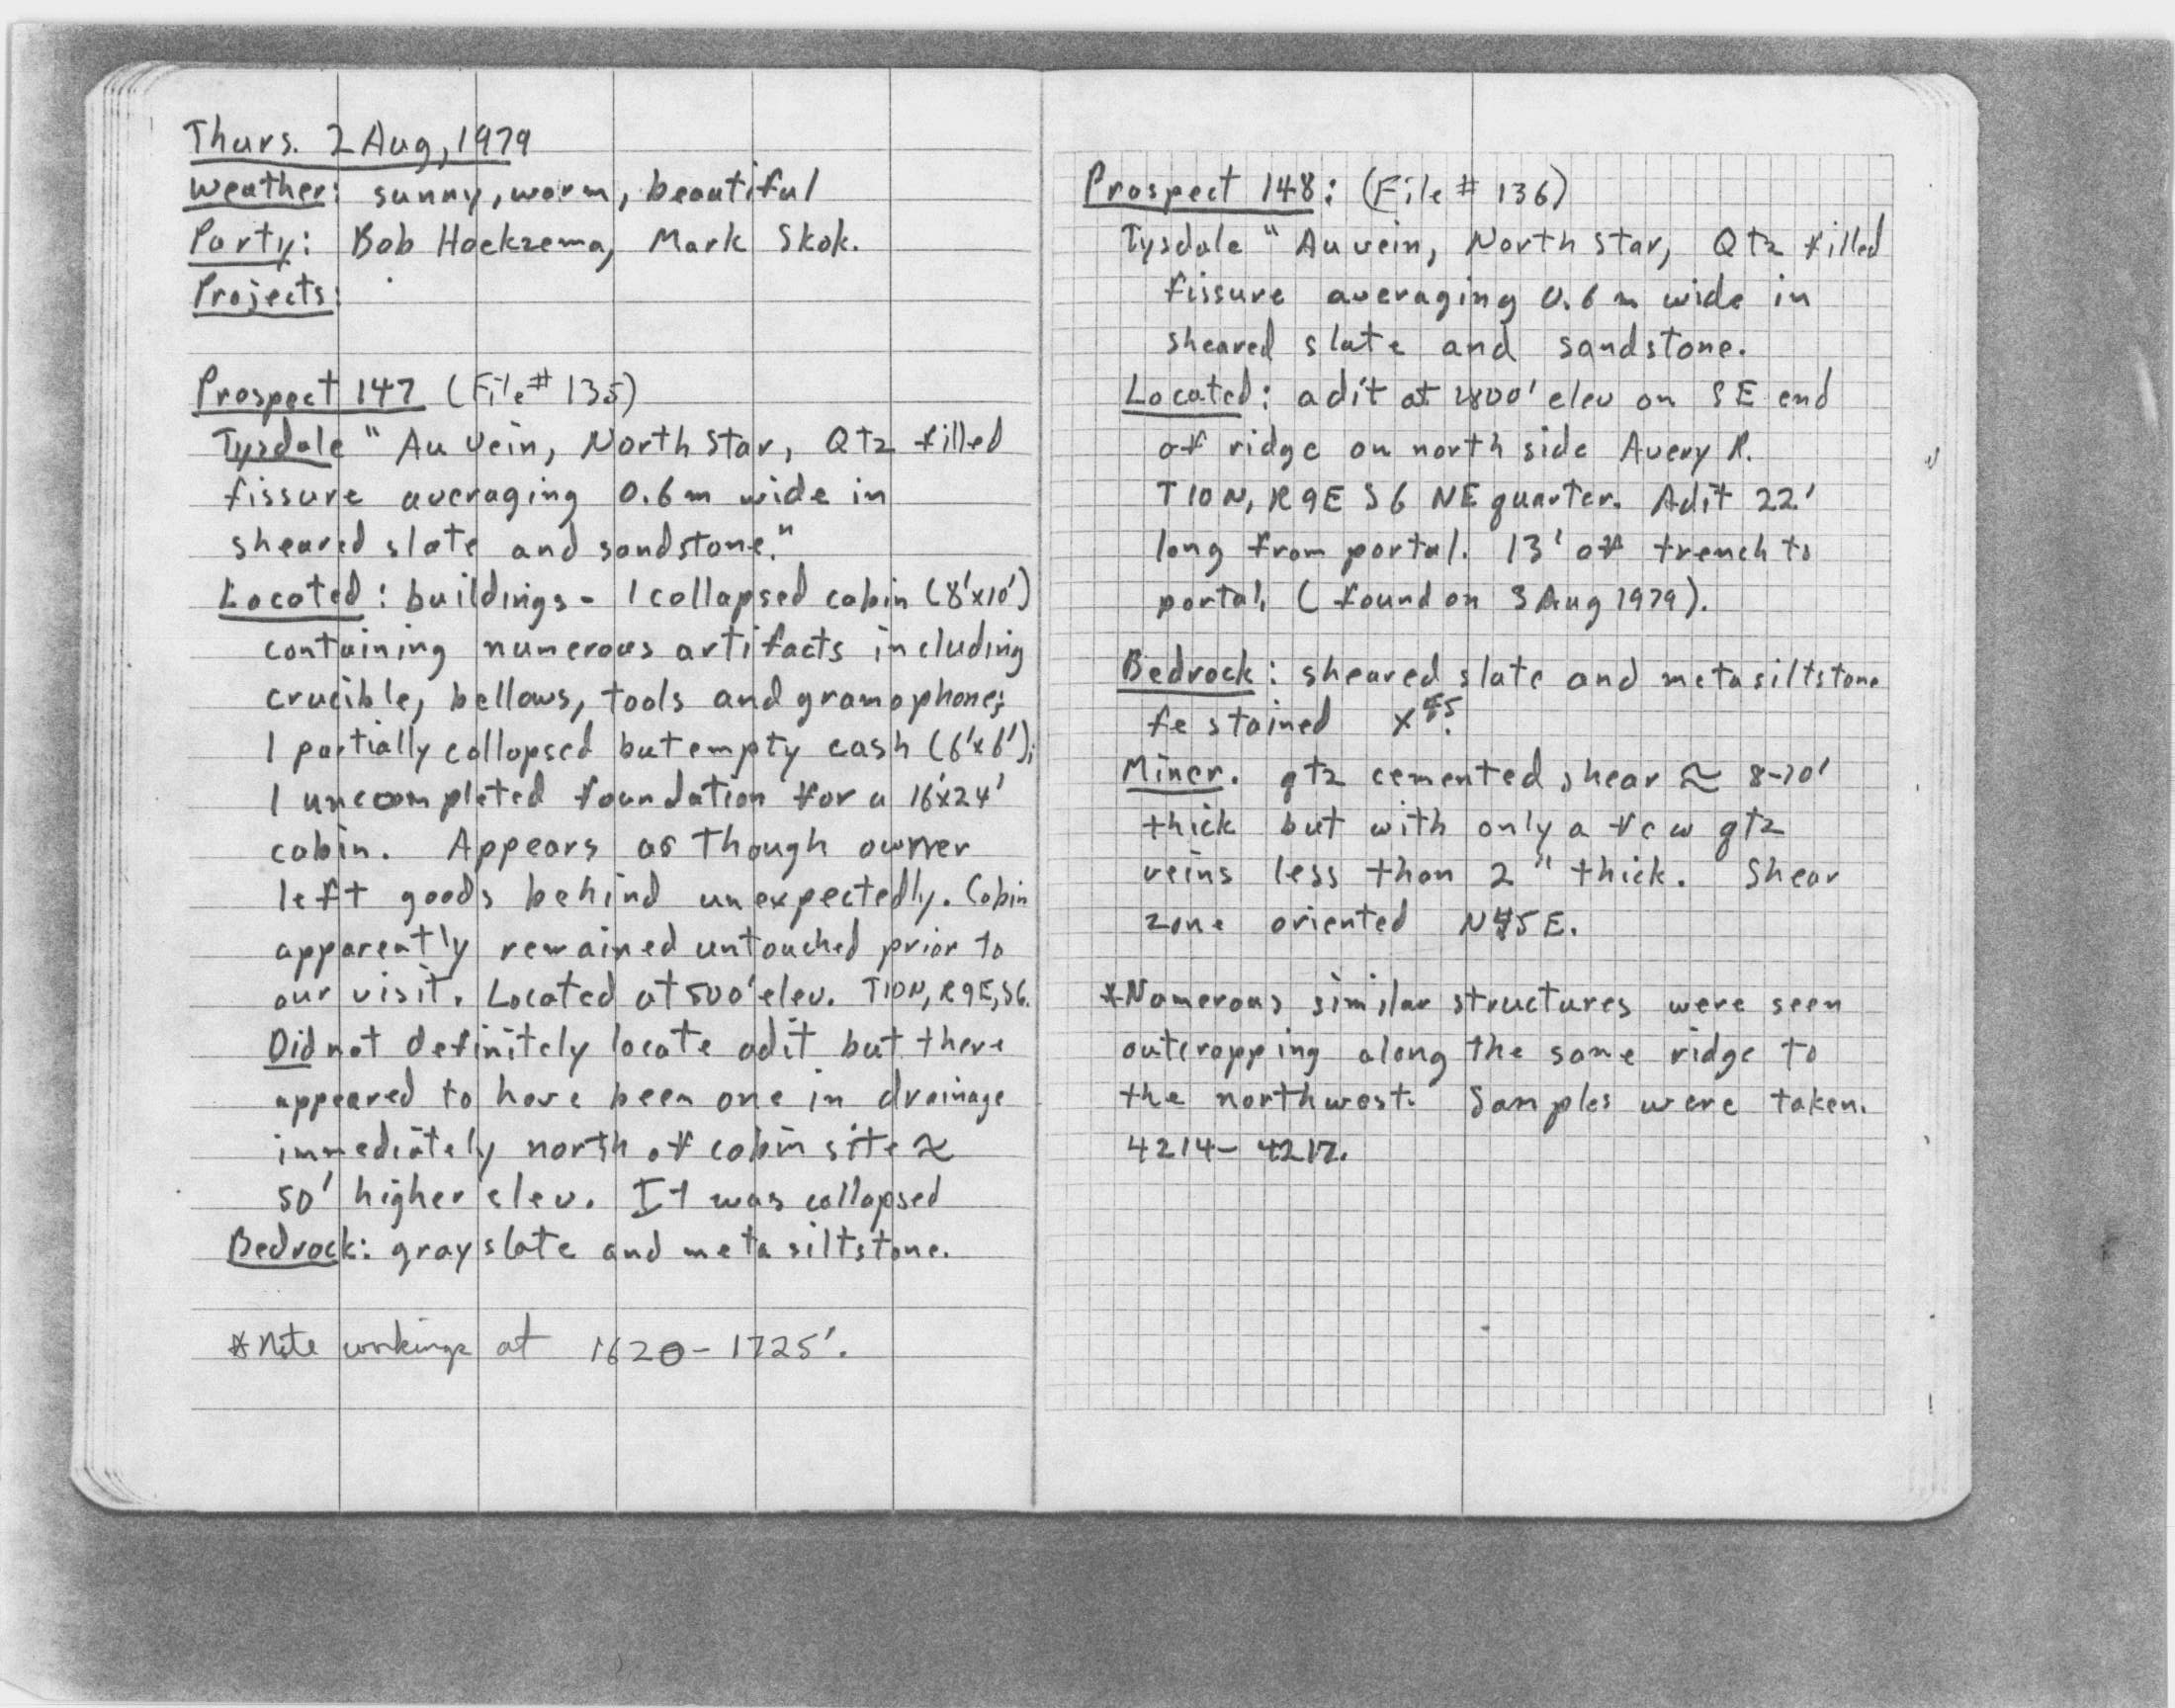 Thurs. 2 Aug, 1979
Weather: sunny, warm, beautiful
Party: Bob Hoekzema, Mark Skok.
Projects:
Prospect 147 (File # 135)
Tysdale " Au Vein, North Star, Qtz filled
fissure averaging 0.6 m wide in
sheared slate and sandstone."
Located: buildings - 1 collapsed cabin (8'x10')
containing numerous artifacts including
crucible, bellows, tools and gramophone;
1 partially collapsed but empty cash (6'x6');
1 uncompleted foundation for a 16'x24'
cabin. Appears as though owner
left goods behind unexpectedly. Cabin
apparently remained untouched prior to
our visit. Located at 500' elev. T10N, R9E, S6.
Did not definitely locate adit but there
appeared to have been one in drainage
immediately north of cabin site ≈
50' higher elev. It was collapsed
Bedrock: gray slate and meta siltstone.
* Note workings at 1620 - 1725'.
Prospect 148: (File # 136)
Tysdale " Au vein, North Star, Qtz filled
fissure averaging 0.6 m wide in
sheared slate and sandstone.
Located: adit at elev on SE end
of ridge on north side Avery R.
T10N, R9E S6 NE quarter. Adit 22'
long from portal. 13' of trench to
portal. (found on 3 Aug 1979).
Bedrock: sheared slate and metasiltstone
fe stained
Miner. qtz cemented shear ≈
thick but with only a few qtz
veins less than 2" thick. Shear
zone oriented
*Numerous similar structures were seen
outcropping along the same ridge to
the northwest. Samples were taken.
4214 - 4217.